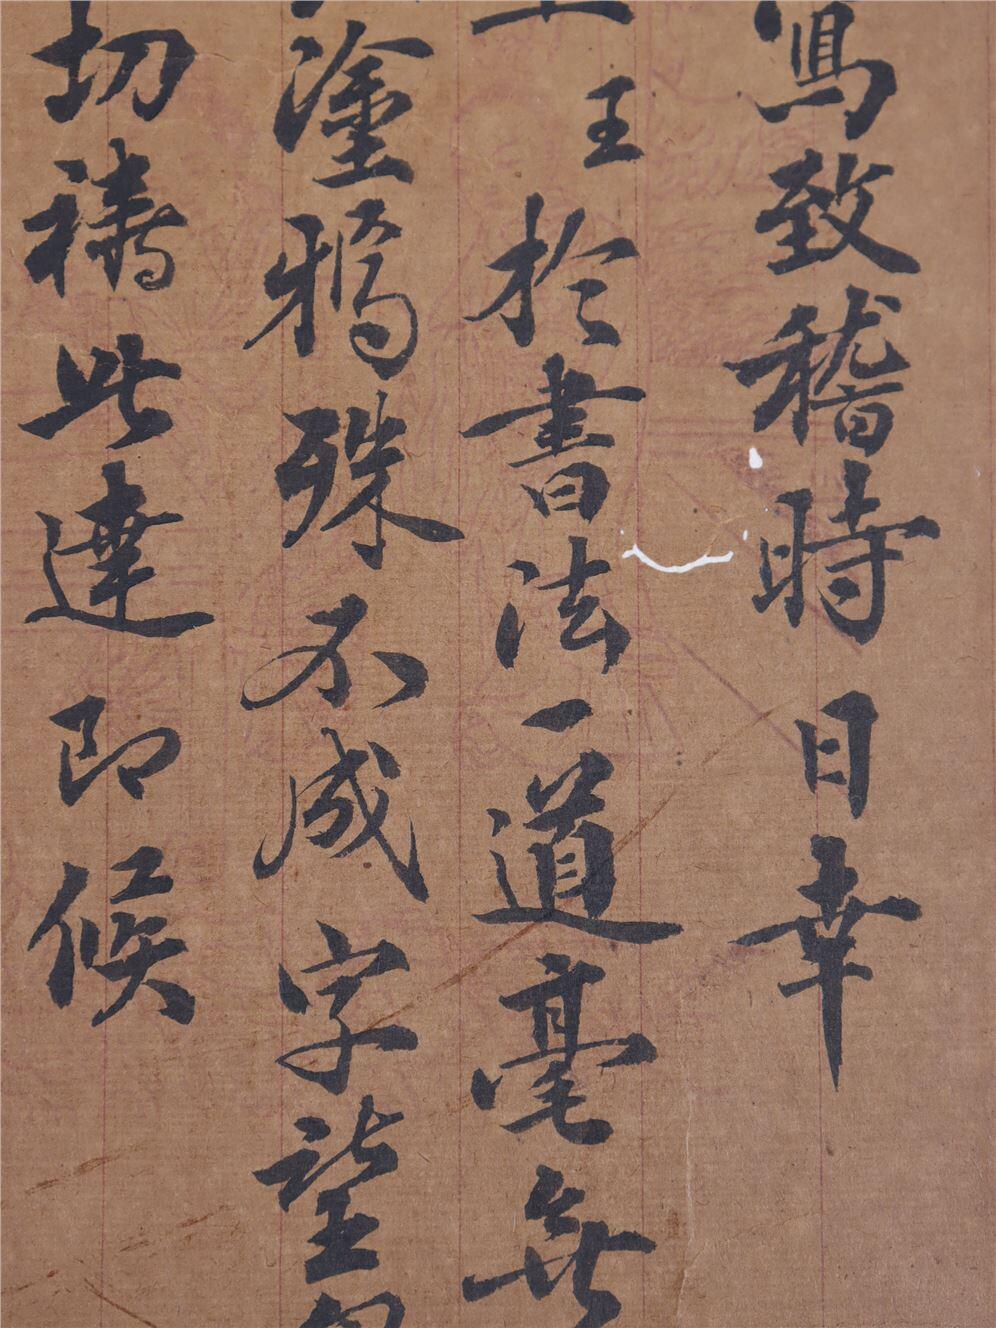 寫致稽時日幸
王於書法一道毫無
塗鴉殊不成字望
切禱此達即候